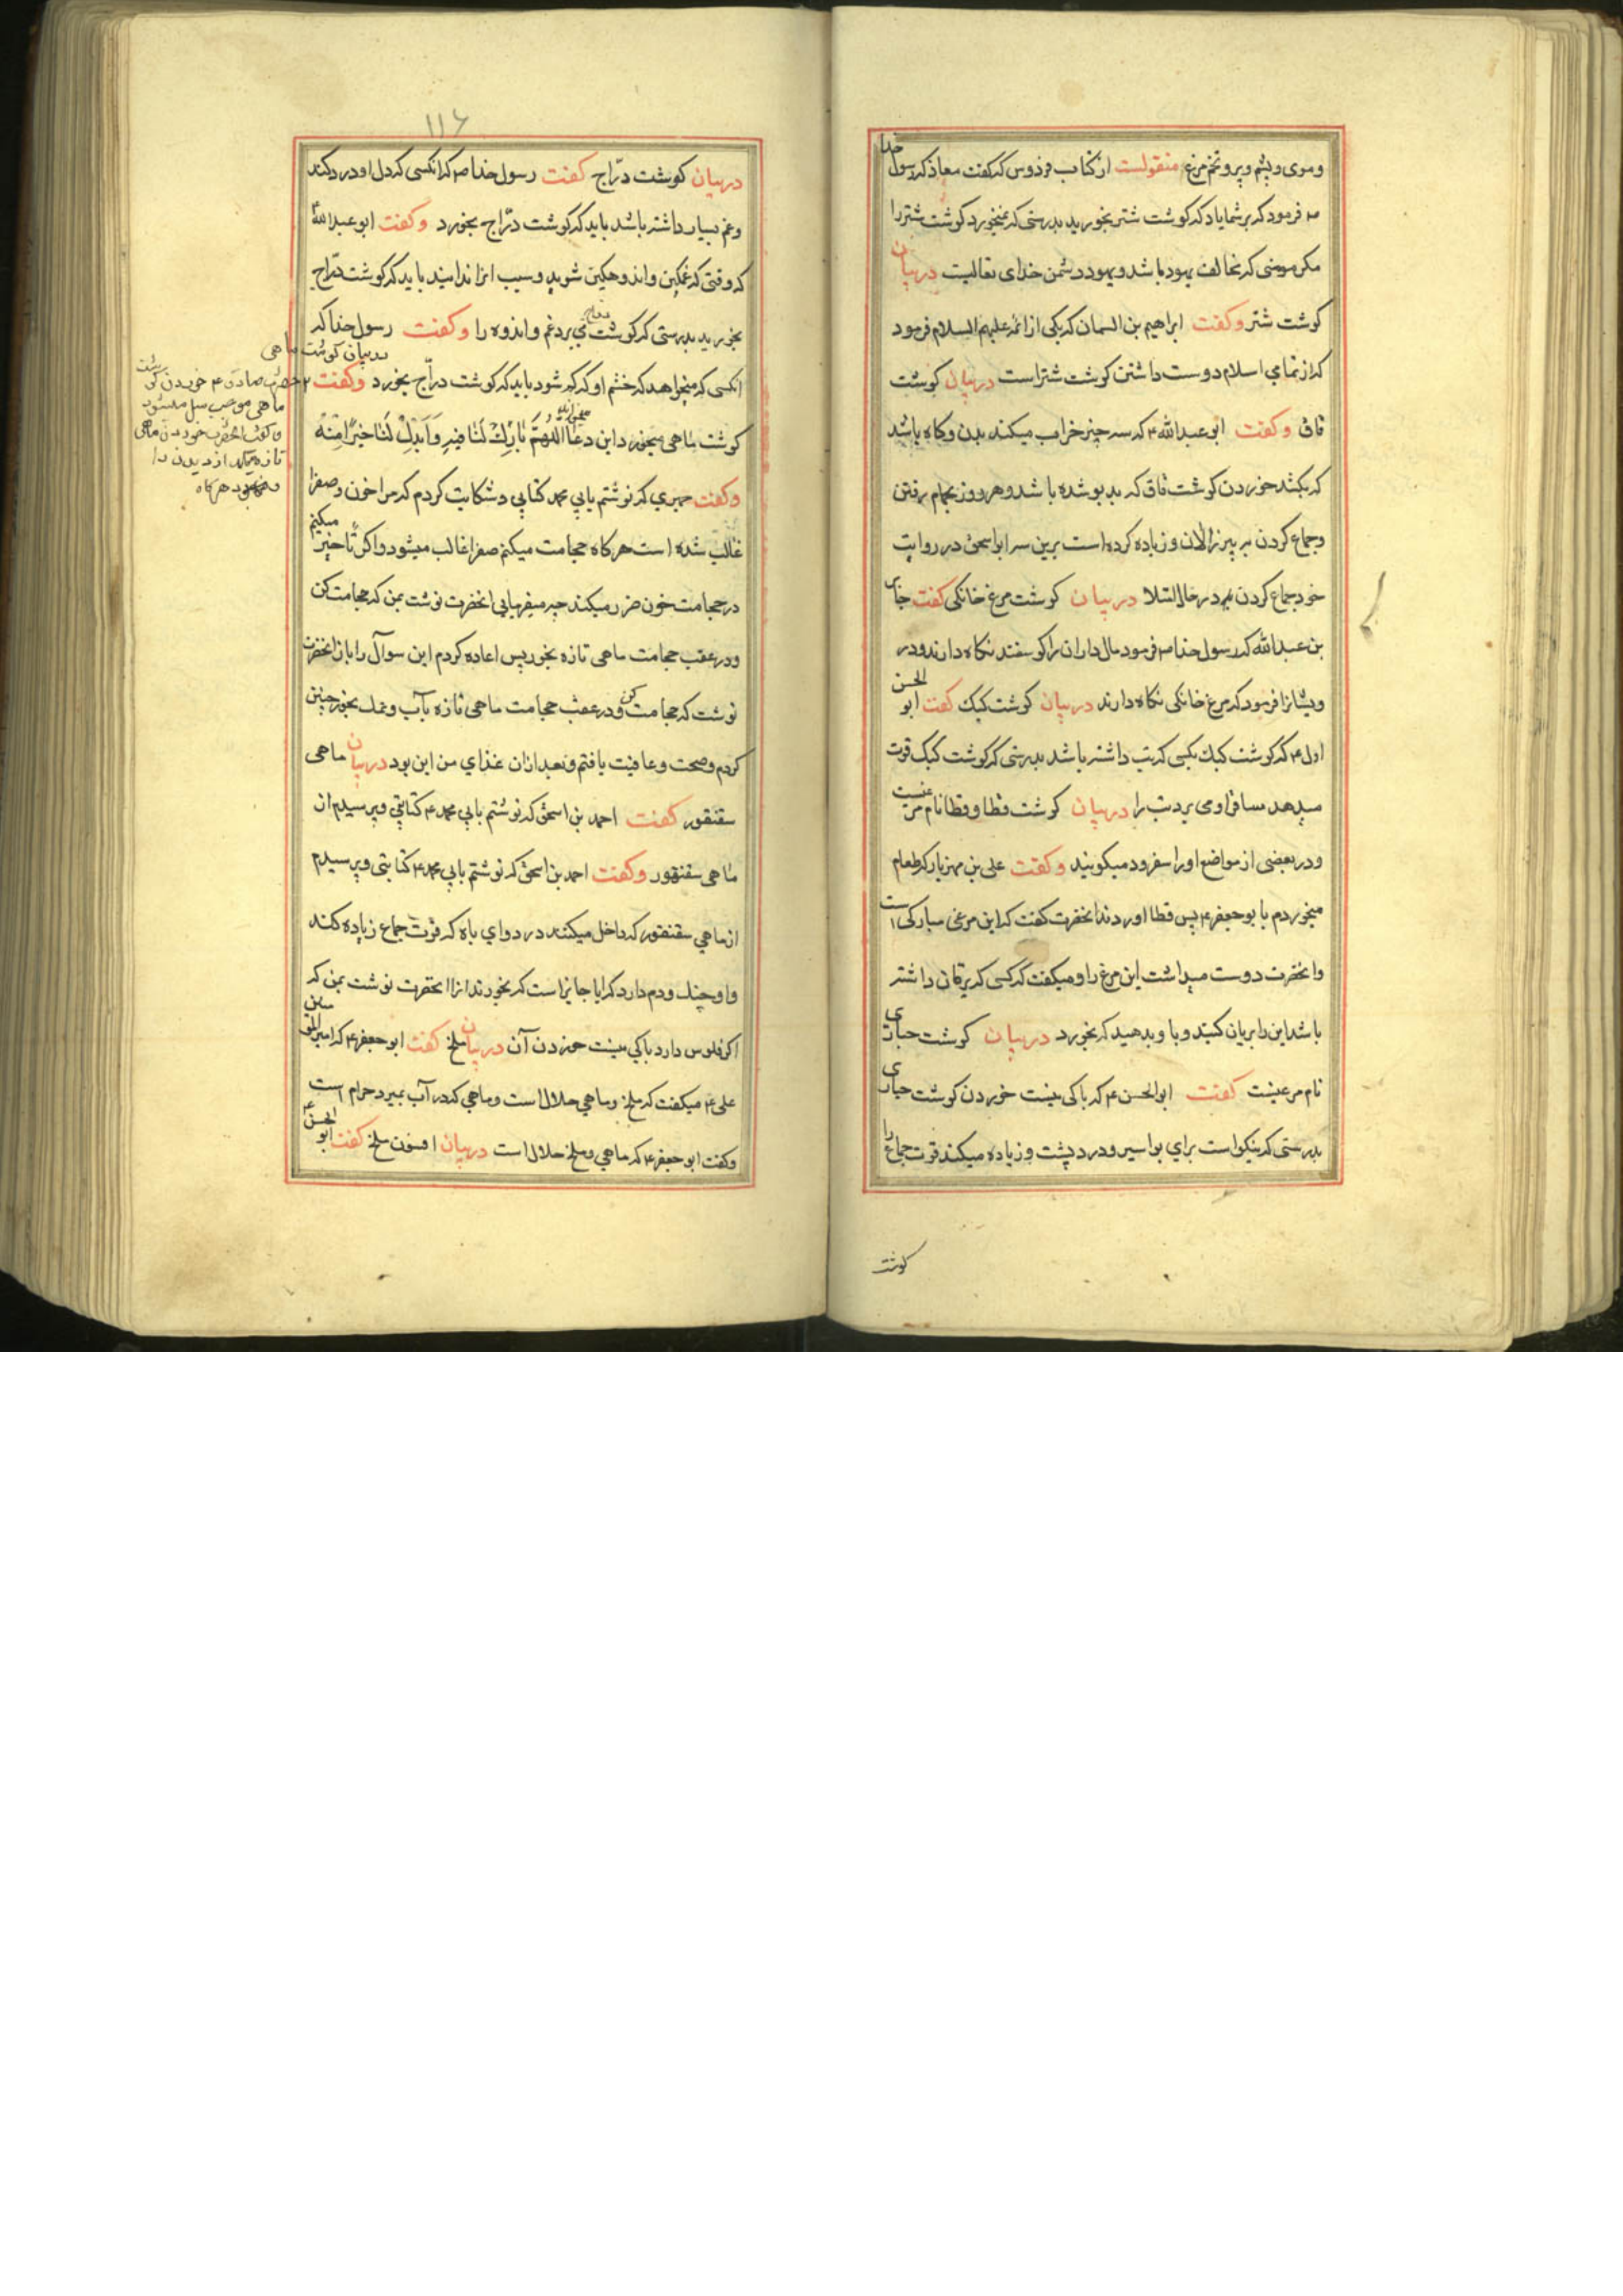 وموی وپشم وپر و تخم مرغ منقولست از کتاب فردوس که گفت معاذ که رسول خدا
ص فرمود که بر شما باد که گوشت شتر بخورید بدرستی که نمیخورد گوشت شتر را
مکر مومنی که مخالف یهود باشد و یهود دشمن خدای تعالیست در بیان
کوشت شتر وکفت ابراهیم بن السمان که یکی از ائمه علیهم السلام فرمود
که از تمامی اسلام دوست داشتن کوشت شتر است در بیان کوشت
قاق وکفت ابو عبدالله ع که سه چیز خراب میکند بدن و کاه باشد
که بکشد خوردن کوشت قاق که بد بو شده باشد و هر روز بحمام رفتن
وجماع کردن بر پیر زالان و زیاده کرده است برین سر ابو اسحق در روایت
خود جماع کردن هم در حال امتلا در بیان کوشت مرغ خانکی کفت جابر
بن عبدالله که رسول خدا ص فرمود مال داران را کوسفند نکاه دارند و در
ویشانرا فرمود که مرغ خانکی نکاه دارند در بیان کوشت کبک کفت ابو الحسن
اول ع که کوشت کبک بکسی که تب داشته باشد بدرستی که کوشت کبک قوت
میدهد ساقرا و می برد تب را در بیان کوشت قطا و قطا نام مرغیست
ودر بعضی از مواضع اورا سفرود میکویند وکفت علی بن مهزیار که طعام
میخوردم با ابو جعفر ع پس قطا اوردند انحضرت کفت که این مرغی مبارکی است
وانحضرت دوست میداشت این مرغ را و میکفت که کسی که یرقان داشته
باشد این را بریان کنید و با و بدهید که بخورد در بیان کوشت حباری
نام مرغیست کفت ابو الحسن ع که باکی نیست خوردن کوشت حباری
بدرستی که نیکو است برای بواسیر و درد پشت و زیاده میکند قوت جماع را
کوشت
۱۱۶
در بیان کوشت درّاج کفت رسول خدا ص که انکسی که دل او درد کند
وغم بسیار داشته باشد باید که کوشت درّاج بخورد وکفت ابو عبدالله ع
که وقتی که غمکین و اندوهکین شوید و سبب انرا ندانید باید که کوشت درّاج
بخورید بدرستی که کوشت می برد غم و اندوه را وکفت رسول خدا که
انکسی که میخواهد که خشم او کم شود باید که کوشت درّاج بخورد وکفت
کوشت ماهی میخورد این دعا اللهُمَّ بَارِكْ لَنَا فِيهِ وَ اَبْدِلْ لَنَا خَيْرًا مِنْهُ
وکفت حمیری که نوشتم بابی محمد کتابی و شکایت کردم که مرا خون و صفرا
غالب شده است هر کاه حجامت میکنم صفرا غالب میشود و اکر تاخیر میکنم
در حجامت خون ضرر میکند چه میفرمایی انحضرت نوشت بمن که حجامت کن
و در عقب حجامت ماهی تازه بخور پس اعاده کردم این سوال را باز انحضرت
نوشت که حجامت کن و در عقب حجامت ماهی تازه بآب و نمک بخور چنین
کردم و صحت و عافیت یافتم و بعد ازان غذای من این بود در بیان ماهی
سقنقور کفت احمد بن اسحق که نوشتم بابی محمد ع کتابتی و پرسیدم از
ماهی سقنقور وکفت احمد بن اسحق که نوشتم بابی محمد ع کتابتی و پرسیدم
از ماهی سقنقور که داخل میکنند در دوای باه که قوت جماع زیاده کند
و او چنک و دم دارد که ایا جایز است که بخورند انرا انحضرت نوشت بمن که
اکر فلوس دارد باکی نیست خوردن آن در بیان ملخ کفت ابو جعفر ع که امیر المومنین
علی ع میکفت که ملخ و ماهی حلال است و ماهی که در آب بمیرد حرام است
وکفت ابو جعفر ع که ماهی و ملخ حلال است در بیان افسون ملخ کفت ابو الحسن ع
در بیان کوشت ماهی
حضرت صادق ع خوردن کوشت
ماهی موجب سل میشود
وکفت انحضرت خوردن ماهی
تازه
هر کاه